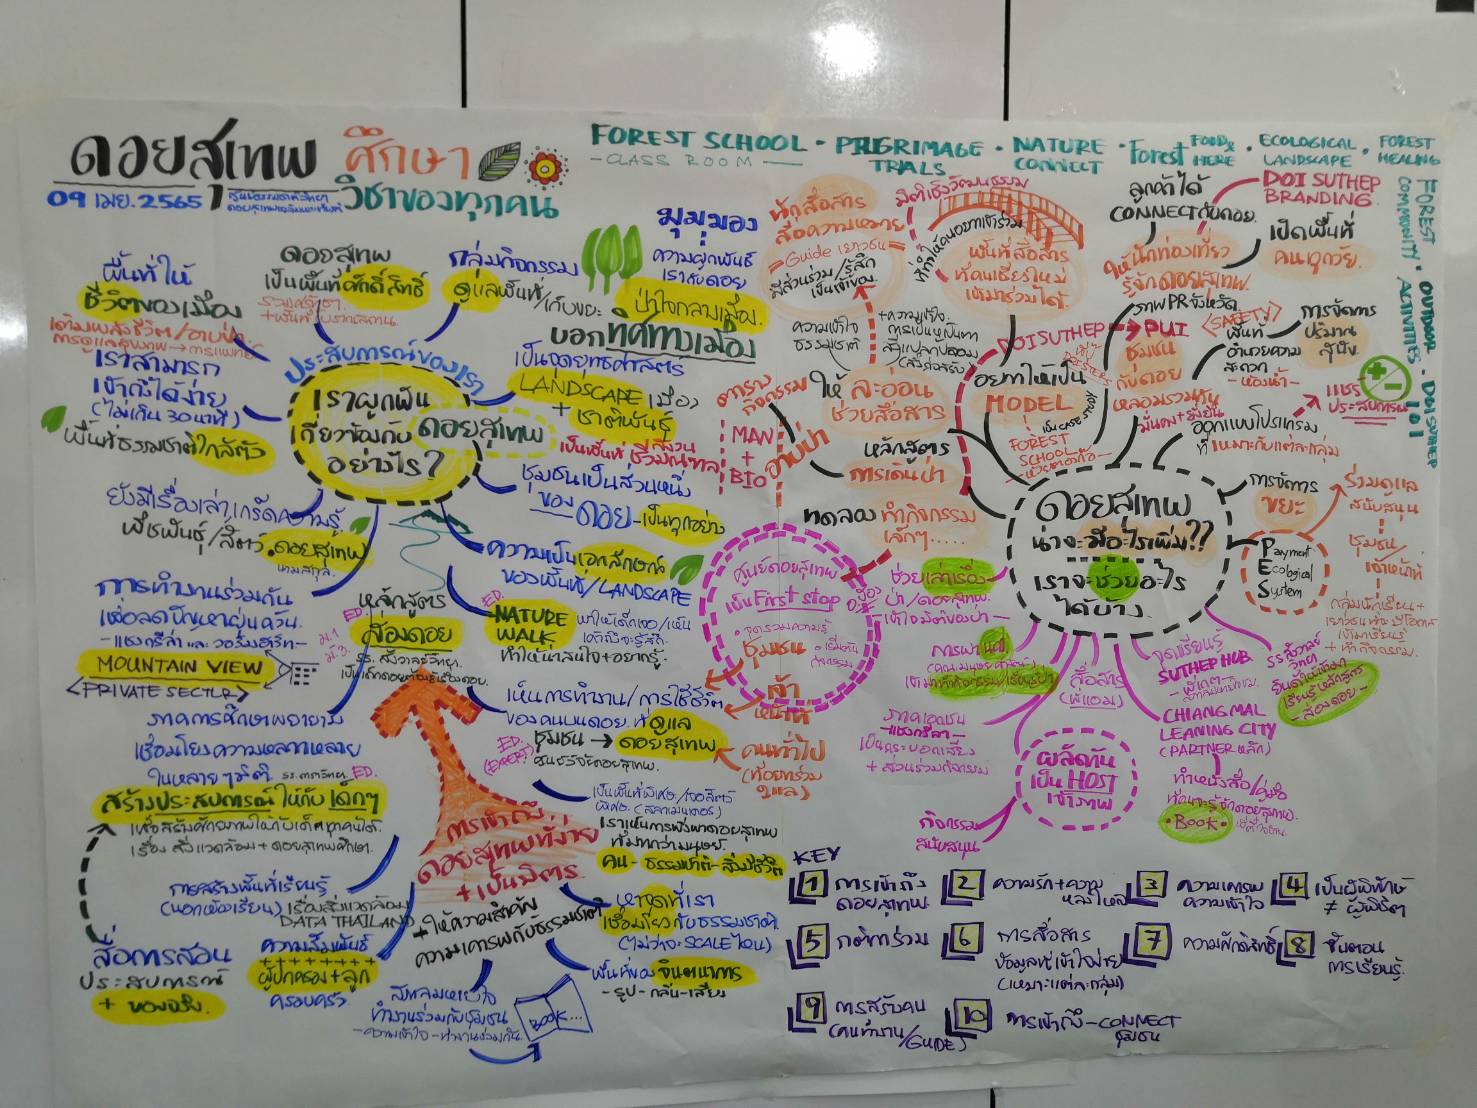 ดอยสุเทพ ศึกษา
09 เมย. 2565
วิชาของทุกคน
FOREST SCHOOL • PILGRIMAGE • NATURE • Forest FOOD HERE • ECOLOGICAL • FOREST
- CLASS ROOM - TRAILS CONNECT LANDSCAPE HEALING
FOREST COMMUNITY • OUTDOOR ACTIVITIES • DOI SUTHEP 101
ประสบการณ์ของเรา
เราผูกพัน
เกี่ยวข้องกับ ดอยสุเทพ
อย่างไร?
พื้นที่ให้
ชีวิตของเมือง
เราสามารถ
เข้าถึงได้ง่าย
(ไม่เกิน 30 นาที)
พื้นที่ธรรมชาติใกล้ตัว
ดอยสุเทพ
เป็นพื้นที่ศักดิ์สิทธิ์
กลุ่มกิจกรรม
ดูแลพื้นที่/เก็บขยะ
มุมมอง
ความผูกพันธ์
เรากับดอย
ป่าใจกลางเมือง
บอกทิศทางเมือง
เป็นจุดยุทธศาสตร์
LANDSCAPE เมือง
+ ชาติพันธุ์
เป็นพื้นที่ ชีวมณฑล
ชุมชนเป็นส่วนหนึ่ง
ของ ดอย - เป็นทุกอย่าง
ความเป็นเอกลักษณ์
ของพื้นที่/LANDSCAPE
ยังมีเรื่องเล่า เกร็ดความรู้
พืชพันธุ์/สัตว์ ดอยสุเทพ
การทำงานร่วมกัน
เพื่อลดปัญหาฝุ่นควัน
MOUNTAIN VIEW
<PRIVATE SECTOR>
หลักสูตร
ส่องดอย
ED.
NATURE
WALK
ทำให้น่าสนใจ + อยากรู้
เห็นการทำงาน/การใช้ชีวิต
ของคนบนดอย ที่ดูแล
ชุมชน → ดอยสุเทพ
ภาคการศึกษาพยายาม
เชื่อมโยงความหลากหลาย
ในหลายๆ มิติ
สร้างประสบการณ์ให้กับเด็กๆ
เรื่อง สิ่งแวดล้อม + ดอยสุเทพศึกษา
การสร้างพื้นที่เรียนรู้
(นอกห้องเรียน) เรื่องสิ่งแวดล้อม
DATA THAILAND
สื่อการสอน
ประสบการณ์
+ ของจริง
ความสัมพันธ์
ผู้ปกครอง + ลูก
ครอบครัว
การเข้าถึง
ดอยสุเทพที่ง่าย
+ เป็นมิตร
+ ให้ความสำคัญ
ความเคารพกับธรรมชาติ
เราเห็นการพึ่งพาดอยสุเทพ
คน - ธรรมชาติ - สิ่งมีชีวิต
หาจุดที่เรา
เชื่อมโยงกับธรรมชาติ
(ไม่ว่าจะ SCALE ไหน)
พื้นที่ของ จินตนาการ
- รูป - กลิ่น - เสียง
ทำงานร่วมกับชุมชน
- ความเข้าใจ - ทำงานร่วมกัน
BOOK...
ศูนย์ดอยสุเทพ
เป็น First stop
• จุดรวมความรู้
ชุมชน
เจ้า
หน้าที่
คนทั่วไป
ตาราง
กิจกรรม
MAN
+
BIO
อาบป่า
ให้ ละอ่อน
ช่วยสื่อสาร
หลักสูตร
การเดินป่า
ทดลอง ทำกิจกรรม
เล็กๆ.....
นักสื่อสาร
สื่อความหมาย
= Guide เยาวชน
มีส่วนร่วม/รู้สึก
เป็นเจ้าของ
มิติเชิงวัฒนธรรม
พื้นที่สื่อสาร
ที่คนเชียงใหม่
เข้ามาร่วมได้
ความเข้าใจ
ธรรมชาติ
DOI SUTHEP → PUI
อยากให้เป็น
MODEL
FOREST
SCHOOL
ลูกค้าได้
CONNECT กับดอย
DOI SUTHEP
BRANDING
ให้นักท่องเที่ยว
รู้จักดอยสุเทพ
ภาพ PR จังหวัด
เปิดพื้นที่
คนทุกวัย
ชุมชน
กับดอย
หลอมรวมกัน
<SAFETY>
พื้นที่
อำนวยความ
สะดวก
- ห้องน้ำ -
การจัดการ
แชร์
ประสบการณ์
ออกแบบโปรแกรม
ที่เหมาะกับแต่ละกลุ่ม
การจัดการ
ขยะ
ร่วมดูแล
สนับสนุน
ชุมชน/
เจ้าหน้าที่
Payment
Ecological
System
ดอยสุเทพ
น่าจะมีอะไรเพิ่ม??
เราจะช่วยอะไร
ได้บ้าง
ช่วยเล่าเรื่อง
ป่า/ดอยสุเทพ
ภาคเอกชน
เป็นกระบอกเสียง
+ ส่วนร่วมกิจกรรม
กิจกรรม
สนับสนุน
สื่อสาร
ผลัดกัน
เป็น HOST
เจ้าภาพ
จุดเรียนรู้
SUTHEP HUB
CHIANG MAI
LEANING CITY
(PARTNER หลัก)
ทำหนังสือ/คู่มือ
• BOOK •
KEY
1 การเข้าถึง
ดอยสุเทพ
2 ความรัก + ความ
หลงใหล
3 ความเคารพ
ความเข้าใจ
4 เป็นผู้พิทักษ์
≠ ผู้พิชิต
5 กติการ่วม
6 การสื่อสาร
ข้อมูลที่เข้าใจง่าย
(เหมาะแต่ละกลุ่ม)
7 ความศักดิ์สิทธิ์
8 ขั้นตอน
การเรียนรู้
9 การสร้างคน
(คนทำงาน/GUIDE)
10 การเข้าถึง - CONNECT
ชุมชน